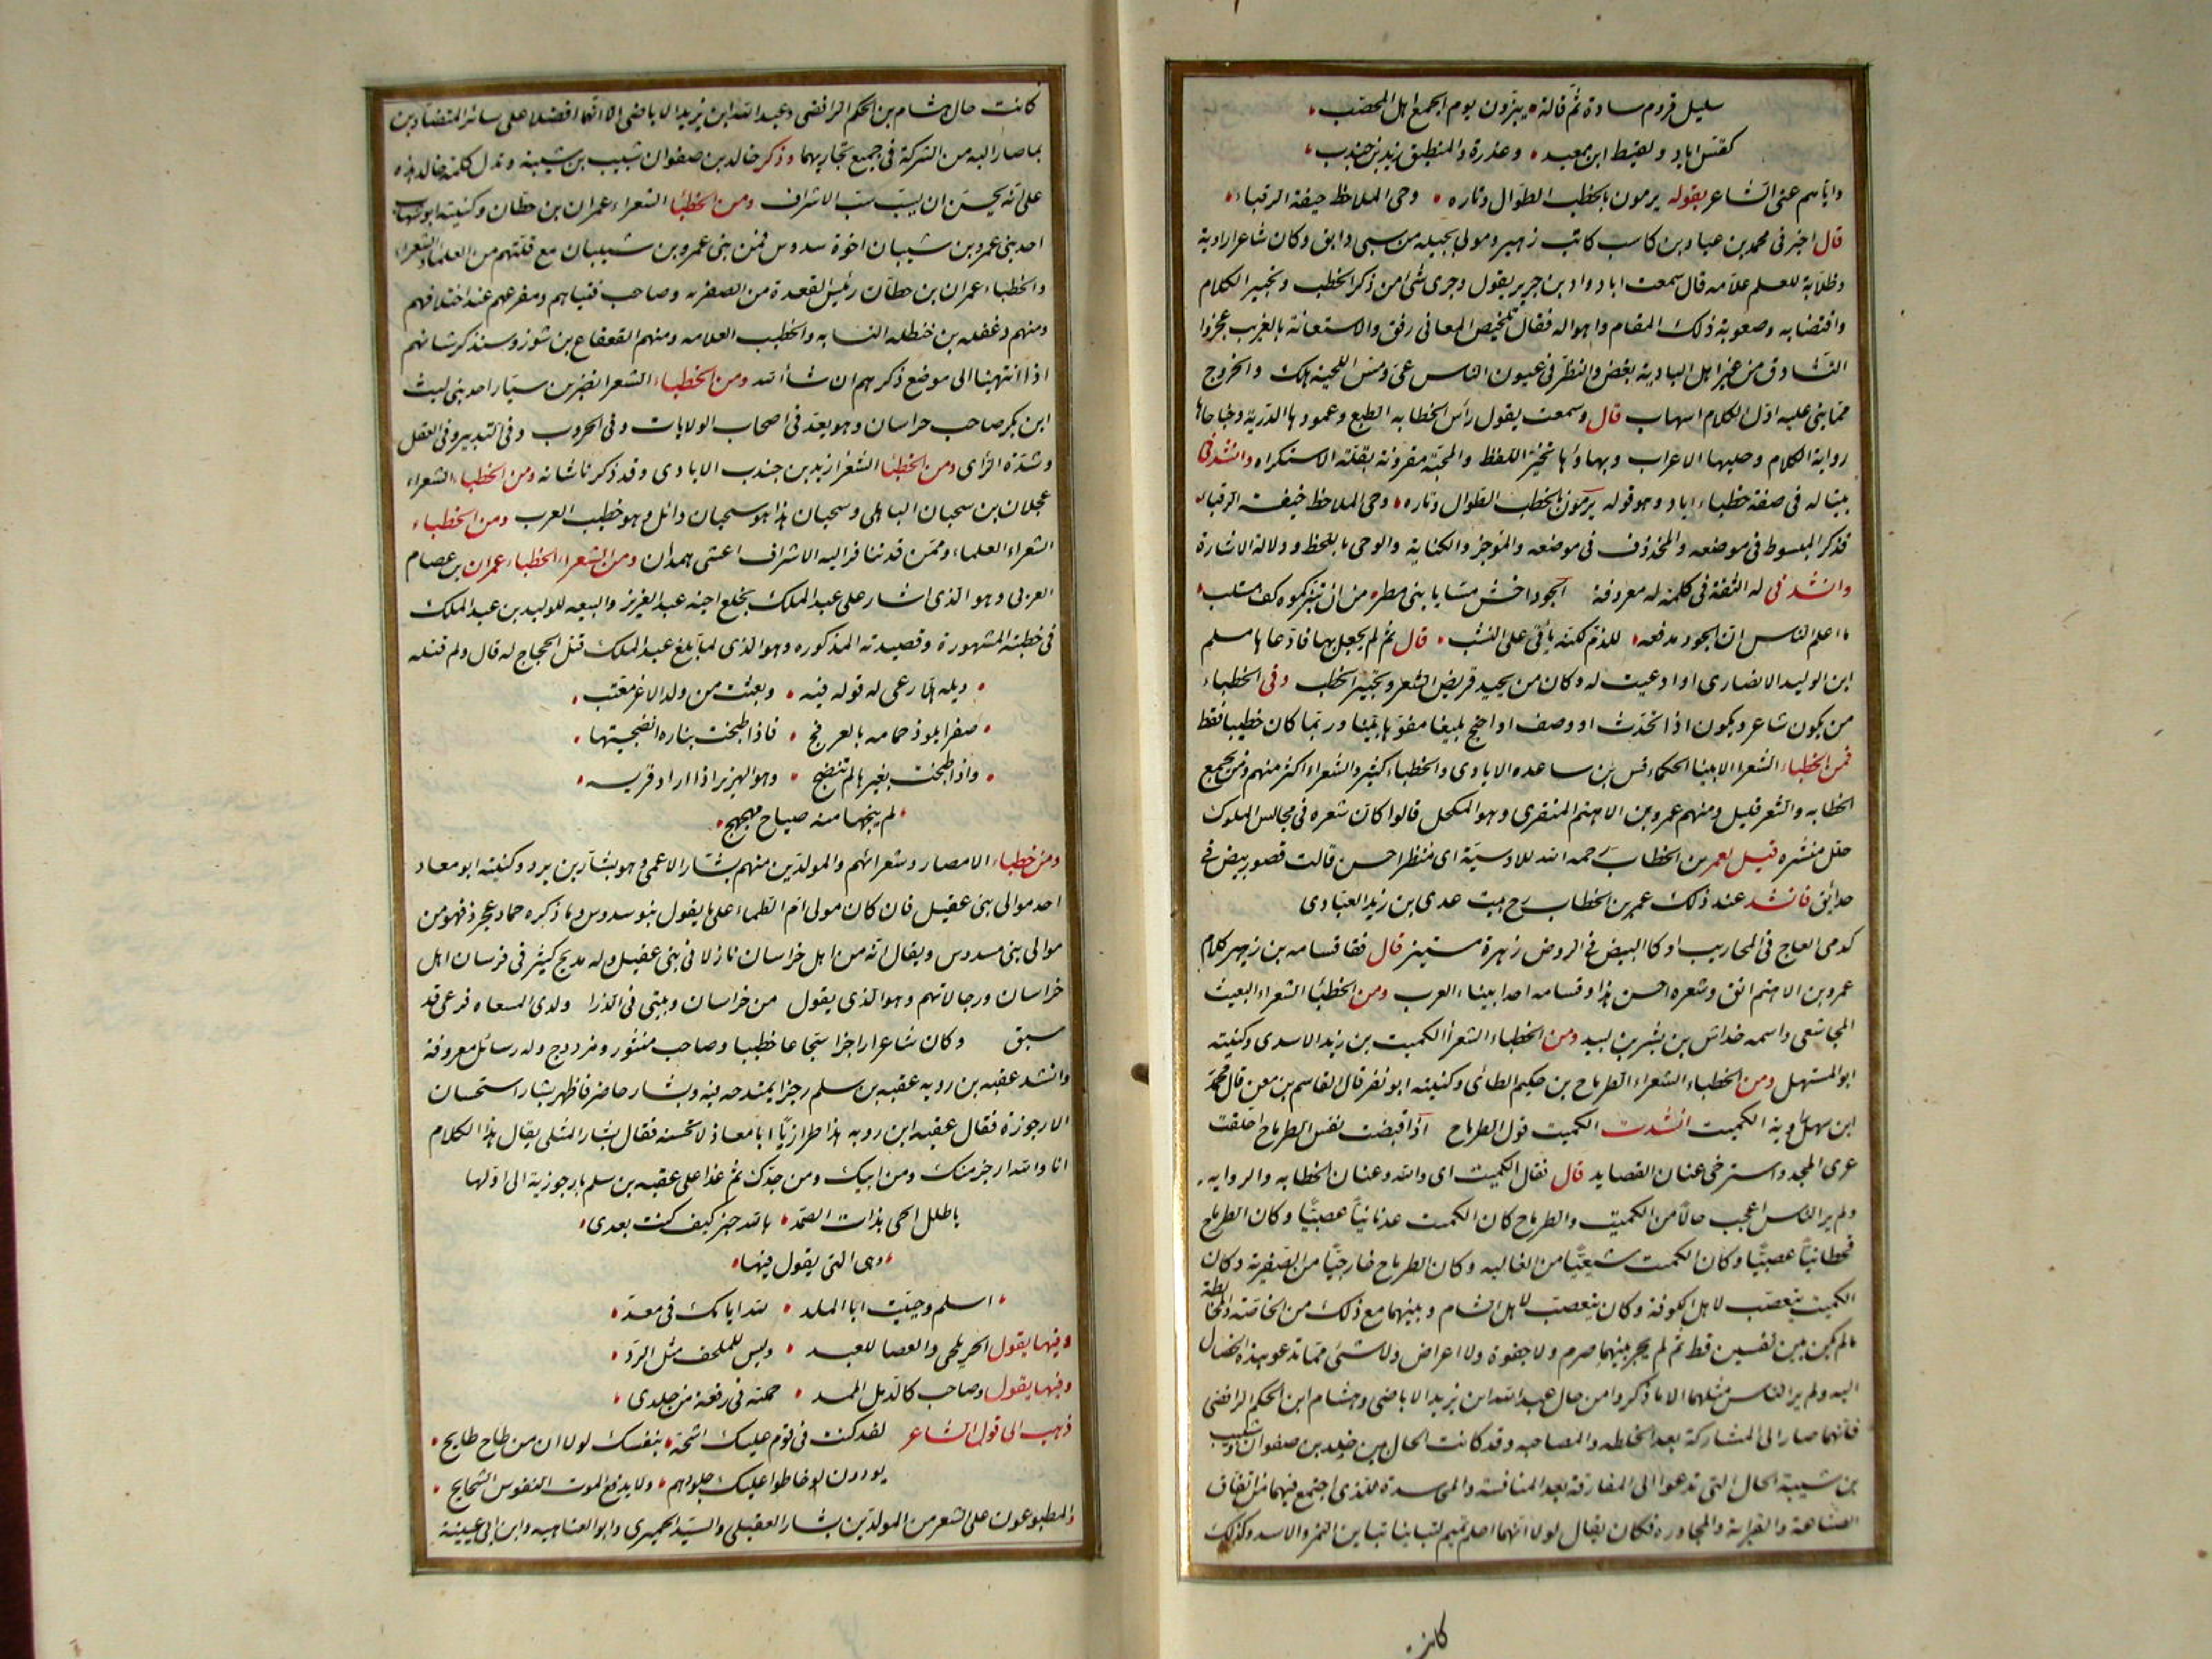 سليل قروم سادة ثم قالة يبزون يوم الجمع اهل المحصب
كقس اياد ولقيط ابن معبد وعذرة والمنطيق زيد بن جندب
واياهم عنى الشاعر بقوله يرمون بالخطب الطوال وتاره وحى الملاحظ خيفة الرقباء
قال اخبرنى محمد بن عباد بن كاسب كاتب زهير ومولى بجيله من سبى دابق وكان شاعرا راوية
وطلابة للعلم علامه قال سمعت ابا دواد بن جرير يقول وجرى شئ من ذكر الخطب وتحبير الكلام
واقتضابه وصعوبة ذلك المقام واهواله فقال تلخيص المعانى رفق والاستعانة بالغريب عجز وا
التشادق من غير اهل البادية بغض والنظر فى عيون الناس عى ومس اللحية هلك والخروج
مما بنى عليه اول الكلام اسهاب قال وسمعت يقول رأس الخطابه الطبع وعمودها الدربة وجناحاها
رواية الكلام وحليها الاعراب وبهاؤها تخير اللفظ والمحبة مقرونة بقلة الاستكراه وانشدنى
بيتا له فى صفة خطباء اياد وهو قوله يرمون بالخطب الطوال وتاره وحى الملاحظ خيفة الرقباء
فذكر المبسوط فى موضعه والمحذوف فى موضعه والموجز والكناية والوحى باللحظ ودلالة الاشارة
وانشدنى له الثقة فى كلمة له معروفة الجود اخشن مسا يا بنى مطر من ان تبزكموه كف مستلب
ما اعلم الناس ان الجود مدفعه للذم لكنه يأتى على النشب قال ثم لم يحفل بها فادعاها مسلم
ابن الوليد الانصارى او ادعيت له وكان من يجيد قريض الشعر وتحبير الخطب وفى الخطباء
من يكون شاعر ويكون اذا تحدث او وصف او احتج بليغا مفوها بينا وربما كان خطيبا فقط
فمن الخطباء الشعراء الابينا الحكماء قس بن ساعده الايادى والخطباء كثير والشعراء اكثر منهم ومن يجمع
الخطابه والشعر قليل ومنهم عمرو بن الاهتم المنقرى وهو المكحل قالوا كان شعره فى مجالس الملوك
حلل منشره قيل لعمر بن الخطاب رحمه الله للاوسية اى منظر احسن قالت قصور بيض فى
حدائق فانشد عند ذلك عمر بن الخطاب رح بيت عدى بن زيد العبادى
كدمى العاج فى المحاريب او كا البيض فى الروض زهرة مستنير قال فقا قسامه بن زهير كلام
عمرو بن الاهتم انق وشعره احسن هذا وقسامه احد ابيناء العرب ومن الخطبأ الشعراء البعيث
المجاشعى واسمه خداش بن بشر بن لبيد ومن الخطباء الشعرأ الكميت بن زيد الاسدى وكنيته
ابو المستهل ومن الخطباء الشعراء الطرماح بن حكيم الطائى وكنيته ابو نفر قال القاسم بن معن قال محمد
ابن سهل راوية الكميت انشدت الكميت قول الطرماح اذا قبضت نفس الطرماح اخلقت
عرى المجد واسترخى عنان القصايد قال فقال الكميت اى والله وعنان الخطابه والروايه
ولم ير الناس اعجب حالا من الكميت والطرماح كان الكميت عدنانيا عصبيا وكان الطرماح
قحطانيا عصبيا وكان الكميت شيعيا من الغاليه وكان الطرماح خارجيا من الصفرية وكان
الكميت يتعصب لاهل الكوفة وكان يتعصب لاهل الشام وبينهما مع ذلك من الخاصة والمخالطة
مالم يكن بين نفسين قط ثم لم يجر بينهما صرم ولا جفوة ولا اعراض ولا شئ مما تدعو هذه الخصال
اليه ولم ير الناس مثلهما الا ما ذكروا من حال عبد الله ابن يزيد الاباضى وهشام ابن الحكم الرافضى
فانهما صارا الى المشاركة بعد الخلطه والمصاحبه وقد كانت الحال بين خالد بن صفوان وشبيب
بن شيبة الحال التى تدعوا الى المفارقة بعد المنافسة والمحاسدة للذى اجتمع فيهما من اتفاق
الصناعة والقرابة والمجاورة فكان يقال لولا انهما احلم تميم لتباينا تباين النمر والاسد وكذلك
كانت
كانت حال هشام بن الحكم الرافضى وعبد الله ابن يزيد الاباضى الا انهما افضلا على سائر المتضادين
بما صارا اليه من الشركة فى جميع تجاربهما وذكر خالد بن صفوان شبيب بن شيبة وتدل كلمة خالد هذه
على انه يحسن ان يسب سب الاشراف ومن الخطبأ الشعراء عمران بن حطان وكنيته ابو شهاب
احد بنى عمرو بن شيبان اخوة سدوس فمن بنى عمرو بن شيبان مع قلتهم من العلماء والشعراء
والخطباء عمران بن حطان رئيس القعدة من الصفريه وصاحب فتياهم ومفزعهم عند اختلافهم
ومنهم دغفل بن حنظله النسابه والخطيب العلامه ومنهم القعقاع بن شور وسنذكر شانهم
اذا انتهينا الى موضع ذكرهم ان شأ الله ومن الخطباء الشعرا نصر بن سيار احد بنى ليث
ابن بكر صاحب خراسان وهو يعد فى اصحاب الولايات وفى الحروب وفى التدبير وفى العقل
وشدة الرأى ومن الخطبا الشعرا زيد بن جندب الايادى وقد ذكرنا شانه ومن الخطباء الشعراء
عجلان بن سحبان الباهلى وسحبان هذا هو سحبان وائل وهو خطيب العرب ومن الخطباء
الشعراء العلماء وممن قد تنافر اليه الاشراف اعشى همدان ومن الشعراء الخطباء عمران بن عصام
العزبى وهو الذى اشار على عبد الملك بخلع اخيه عبد العزيز والبيعه للوليد بن عبد الملك
فى خطبته المشهورة وقصيدته المذكوره وهو الذى لما بلغ عبد الملك قتل الحجاج له قال ولم قتله
ويله الا رعى له قوله فيه وبعثت من ولد الاغر معتب
صقرا يلوذ حمامه بالعرفج فاذا طبخت بناره انضجتها
واذا طبخت بغيرها لم تنضج وهو الهزبر اذا اراد فريسه
لم ينجها منه صياح مهجهج
ومن خطباء الامصار وشعرائهم والمولدين منهم بشار الاعمى وهو بشار بن برد وكنيته ابو معاد
احد موالى بنى عقيل فان كان مولى ام الظباء على ما يقول بنو سدوس وما ذكره حماد عجرد فهو من
موالى بنى سدوس ويقال انه من اهل خراسان نازلا فى بنى عقيل وله مديح كثير فى فرسان اهل
خراسان ورجالاتهم وهو الذى يقول من خراسان وبيتى فى الذرا ولدى المسعاه فرعى قد
سبق وكان شاعرا راجزا سجاعا خطيبا وصاحب منثور ومزدوج وله رسائل معروفة
وانشد عقبه بن رويه عقبه بن سلم رجزا يمتدحه فيه وبشار حاضر فاظهر بشار استحسان
الارجوزة فقال عقبه ابن روبه هذا طراز يا ابا معاذ لا تحسنه فقال بشار المثلى يقال هذا الكلام
انا والله ارجز منك ومن ابيك ومن جدك ثم غدا على عقبه بن سلم بارجوزية التى اولها
يا طلل الحى بذات الصمد بالله خبر كيف كنت بعدى
وهى التى يقول فيها
اسلم وحييت ابا الملد لله ايامك فى معد
وفيها يقول الحر يلحى والعصا للعبد وليس للملحف مثل الرد
وفيها يقول وصاحب كالدمل الممد حملته فى رقعة من جلدى
ذهب الى قول الشاعر لقد كنت فى قوم عليك اشحة بنفسك لولا ان من طاح طايح
يودون لو خاطوا عليك جلودهم ولا يدفع الموت النفوس الشحايح
والمطبوعون على الشعر من المولدين بشار العقيلى والسيد الحميرى وابو العتاهيه وابن ابى عيينة